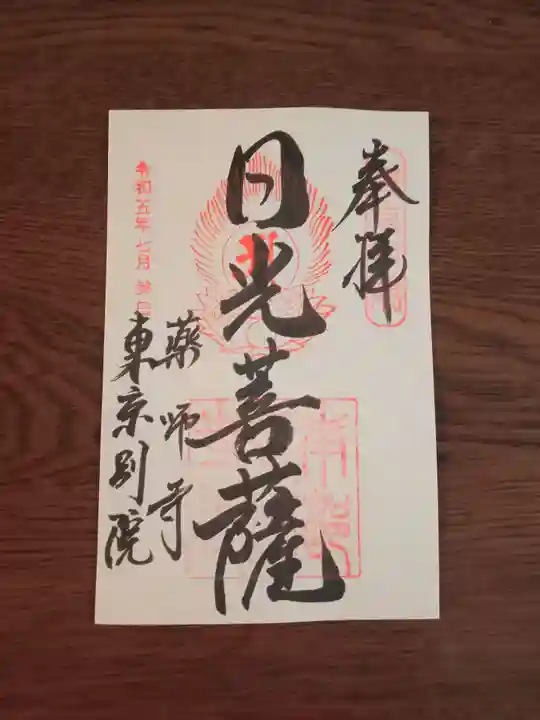 奉拝
日光菩薩
薬師寺
東京別院
令和五年七月